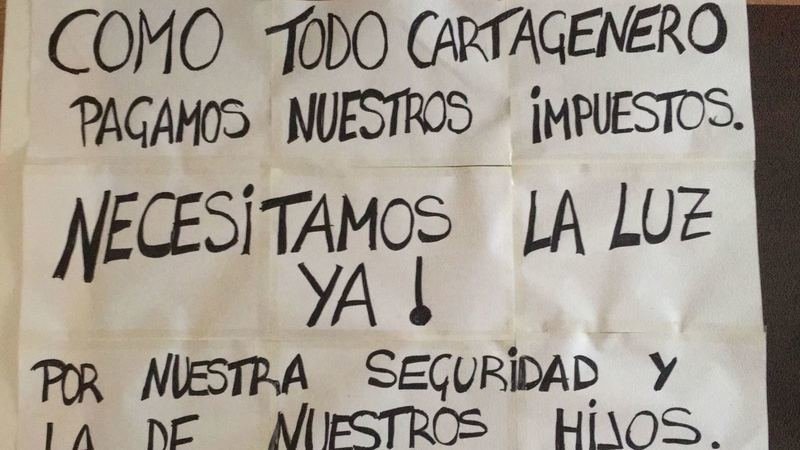 COMO TODO CARTAGENERO
PAGAMOS NUESTROS IMPUESTOS.
NECESITAMOS LA LUZ
YA!
POR NUESTRA SEGURIDAD Y
LA DE NUESTROS HIJOS.